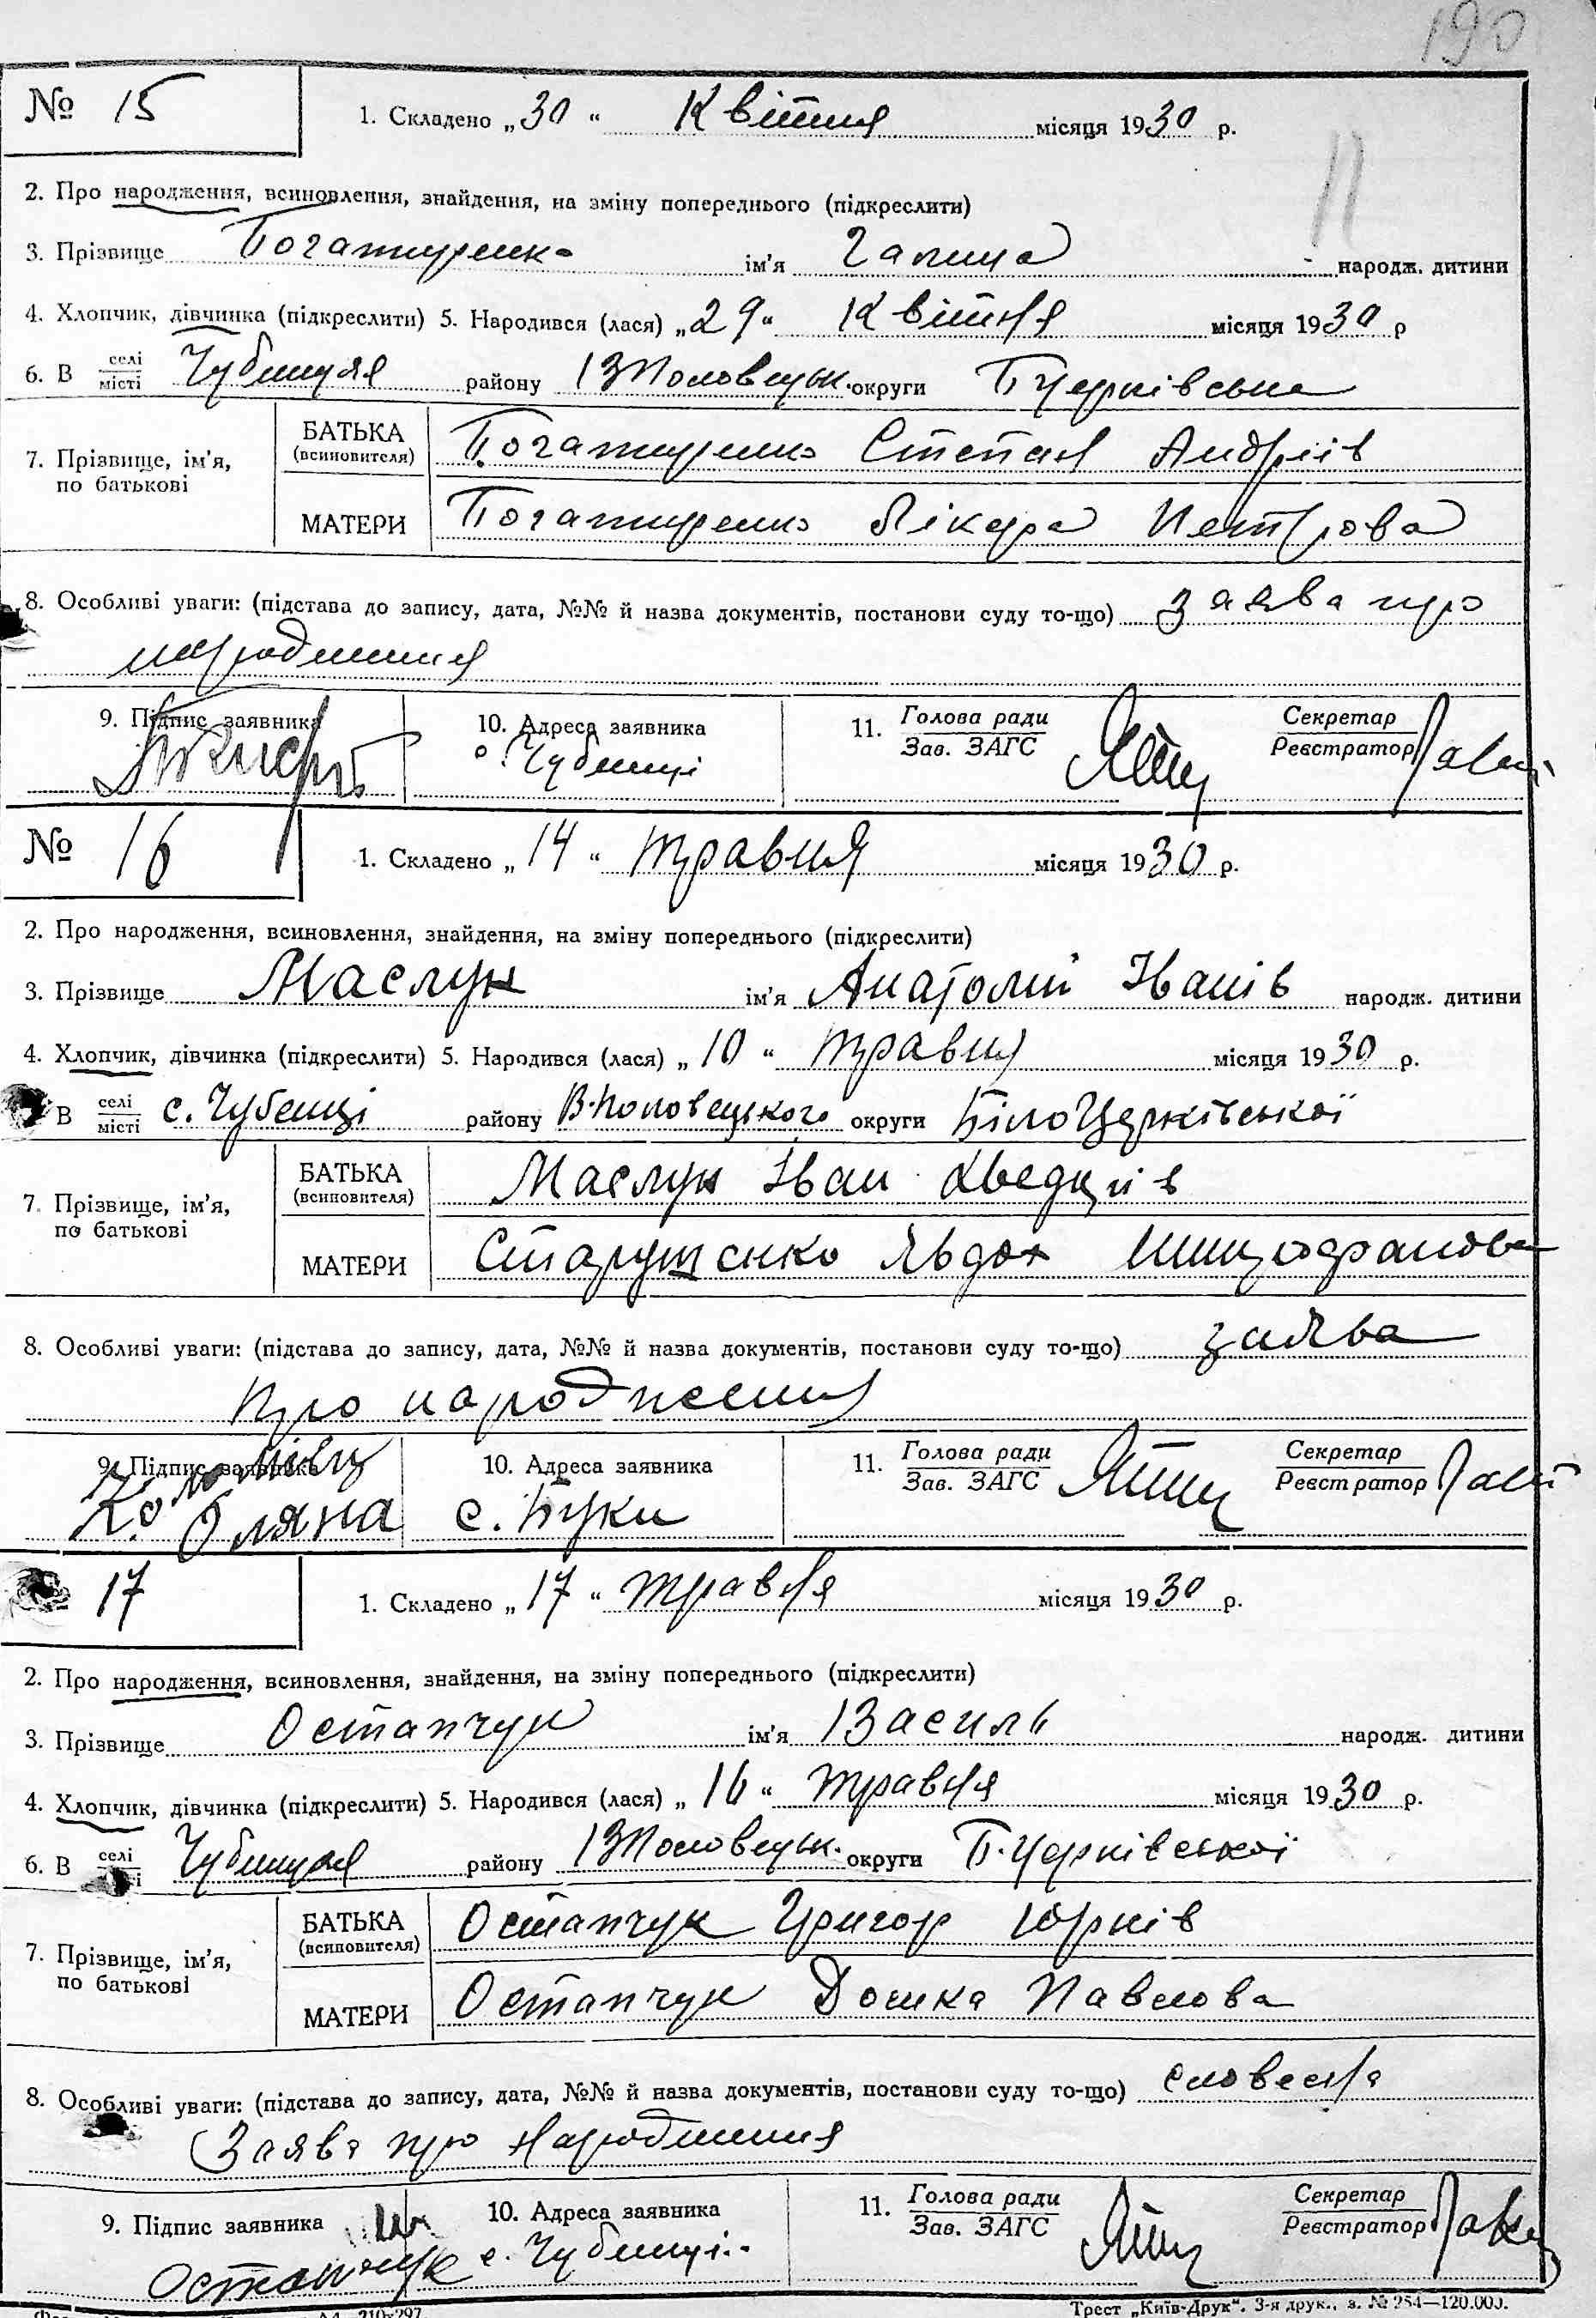 190
№ 15
1. Складено „30“ Квітня місяця 1930 р.
11
2. Про народження, всиновлення, знайдення, на зміну попереднього (підкреслити)
3. Прізвище Богатиренко ім'я Галина народж. дитини
4. Хлопчик, дівчинка (підкреслити) 5. Народився (лася) „29“ Квітня місяця 1930 р
6. В селі/місті Чубинця району ВПоловецьк. округи БЦерківська
7. Прізвище, ім'я, по батькові
БАТЬКА (всиновителя) Богатиренко Степан Андріїв
МАТЕРИ Богатиренко Лікера Петрова
8. Особливі уваги: (підстава до запису, дата, №№ й назва документів, постанови суду то-що) заява про
народження
9. Підпис заявника
10. Адреса заявника
с. Чубинці
11. Голова ради / Зав. ЗАГС
Секретар / Реєстратор
№ 16
1. Складено „14“ травня місяця 1930 р.
2. Про народження, всиновлення, знайдення, на зміну попереднього (підкреслити)
3. Прізвище Маслук ім'я Анатолій Іванів народж. дитини
4. Хлопчик, дівчинка (підкреслити) 5. Народився (лася) „10“ травня місяця 1930 р.
В селі/місті с. Чубенці району В-Половецького округи БілоЦерківської
7. Прізвище, ім'я, по батькові
БАТЬКА (всиновителя) Маслук Іван
МАТЕРИ Старушенко Явдох
8. Особливі уваги: (підстава до запису, дата, №№ й назва документів, постанови суду то-що) заява
про народження
9. Підпис заявника
Коломієць
Уляна
10. Адреса заявника
с. Буки
11. Голова ради / Зав. ЗАГС
Секретар / Реєстратор
17
1. Складено „17“ травня місяця 1930 р.
2. Про народження, всиновлення, знайдення, на зміну попереднього (підкреслити)
3. Прізвище Остапчук ім'я Василь народж. дитини
4. Хлопчик, дівчинка (підкреслити) 5. Народився (лася) „16“ травня місяця 1930 р.
6. В селі Чубинця району ВПоловецьк. округи Б.Церківської
7. Прізвище, ім'я, по батькові
БАТЬКА (всиновителя) Остапчук Григор Юрків
МАТЕРИ Остапчук Домка Павлова
8. Особливі уваги: (підстава до запису, дата, №№ й назва документів, постанови суду то-що) словесна
Заява про народження
9. Підпис заявника
Остапчук
10. Адреса заявника
с. Чубинці.
11. Голова ради / Зав. ЗАГС
Секретар / Реєстратор
Трест „Київ-Друк“. 3-я друк., з. № 254—120.000.